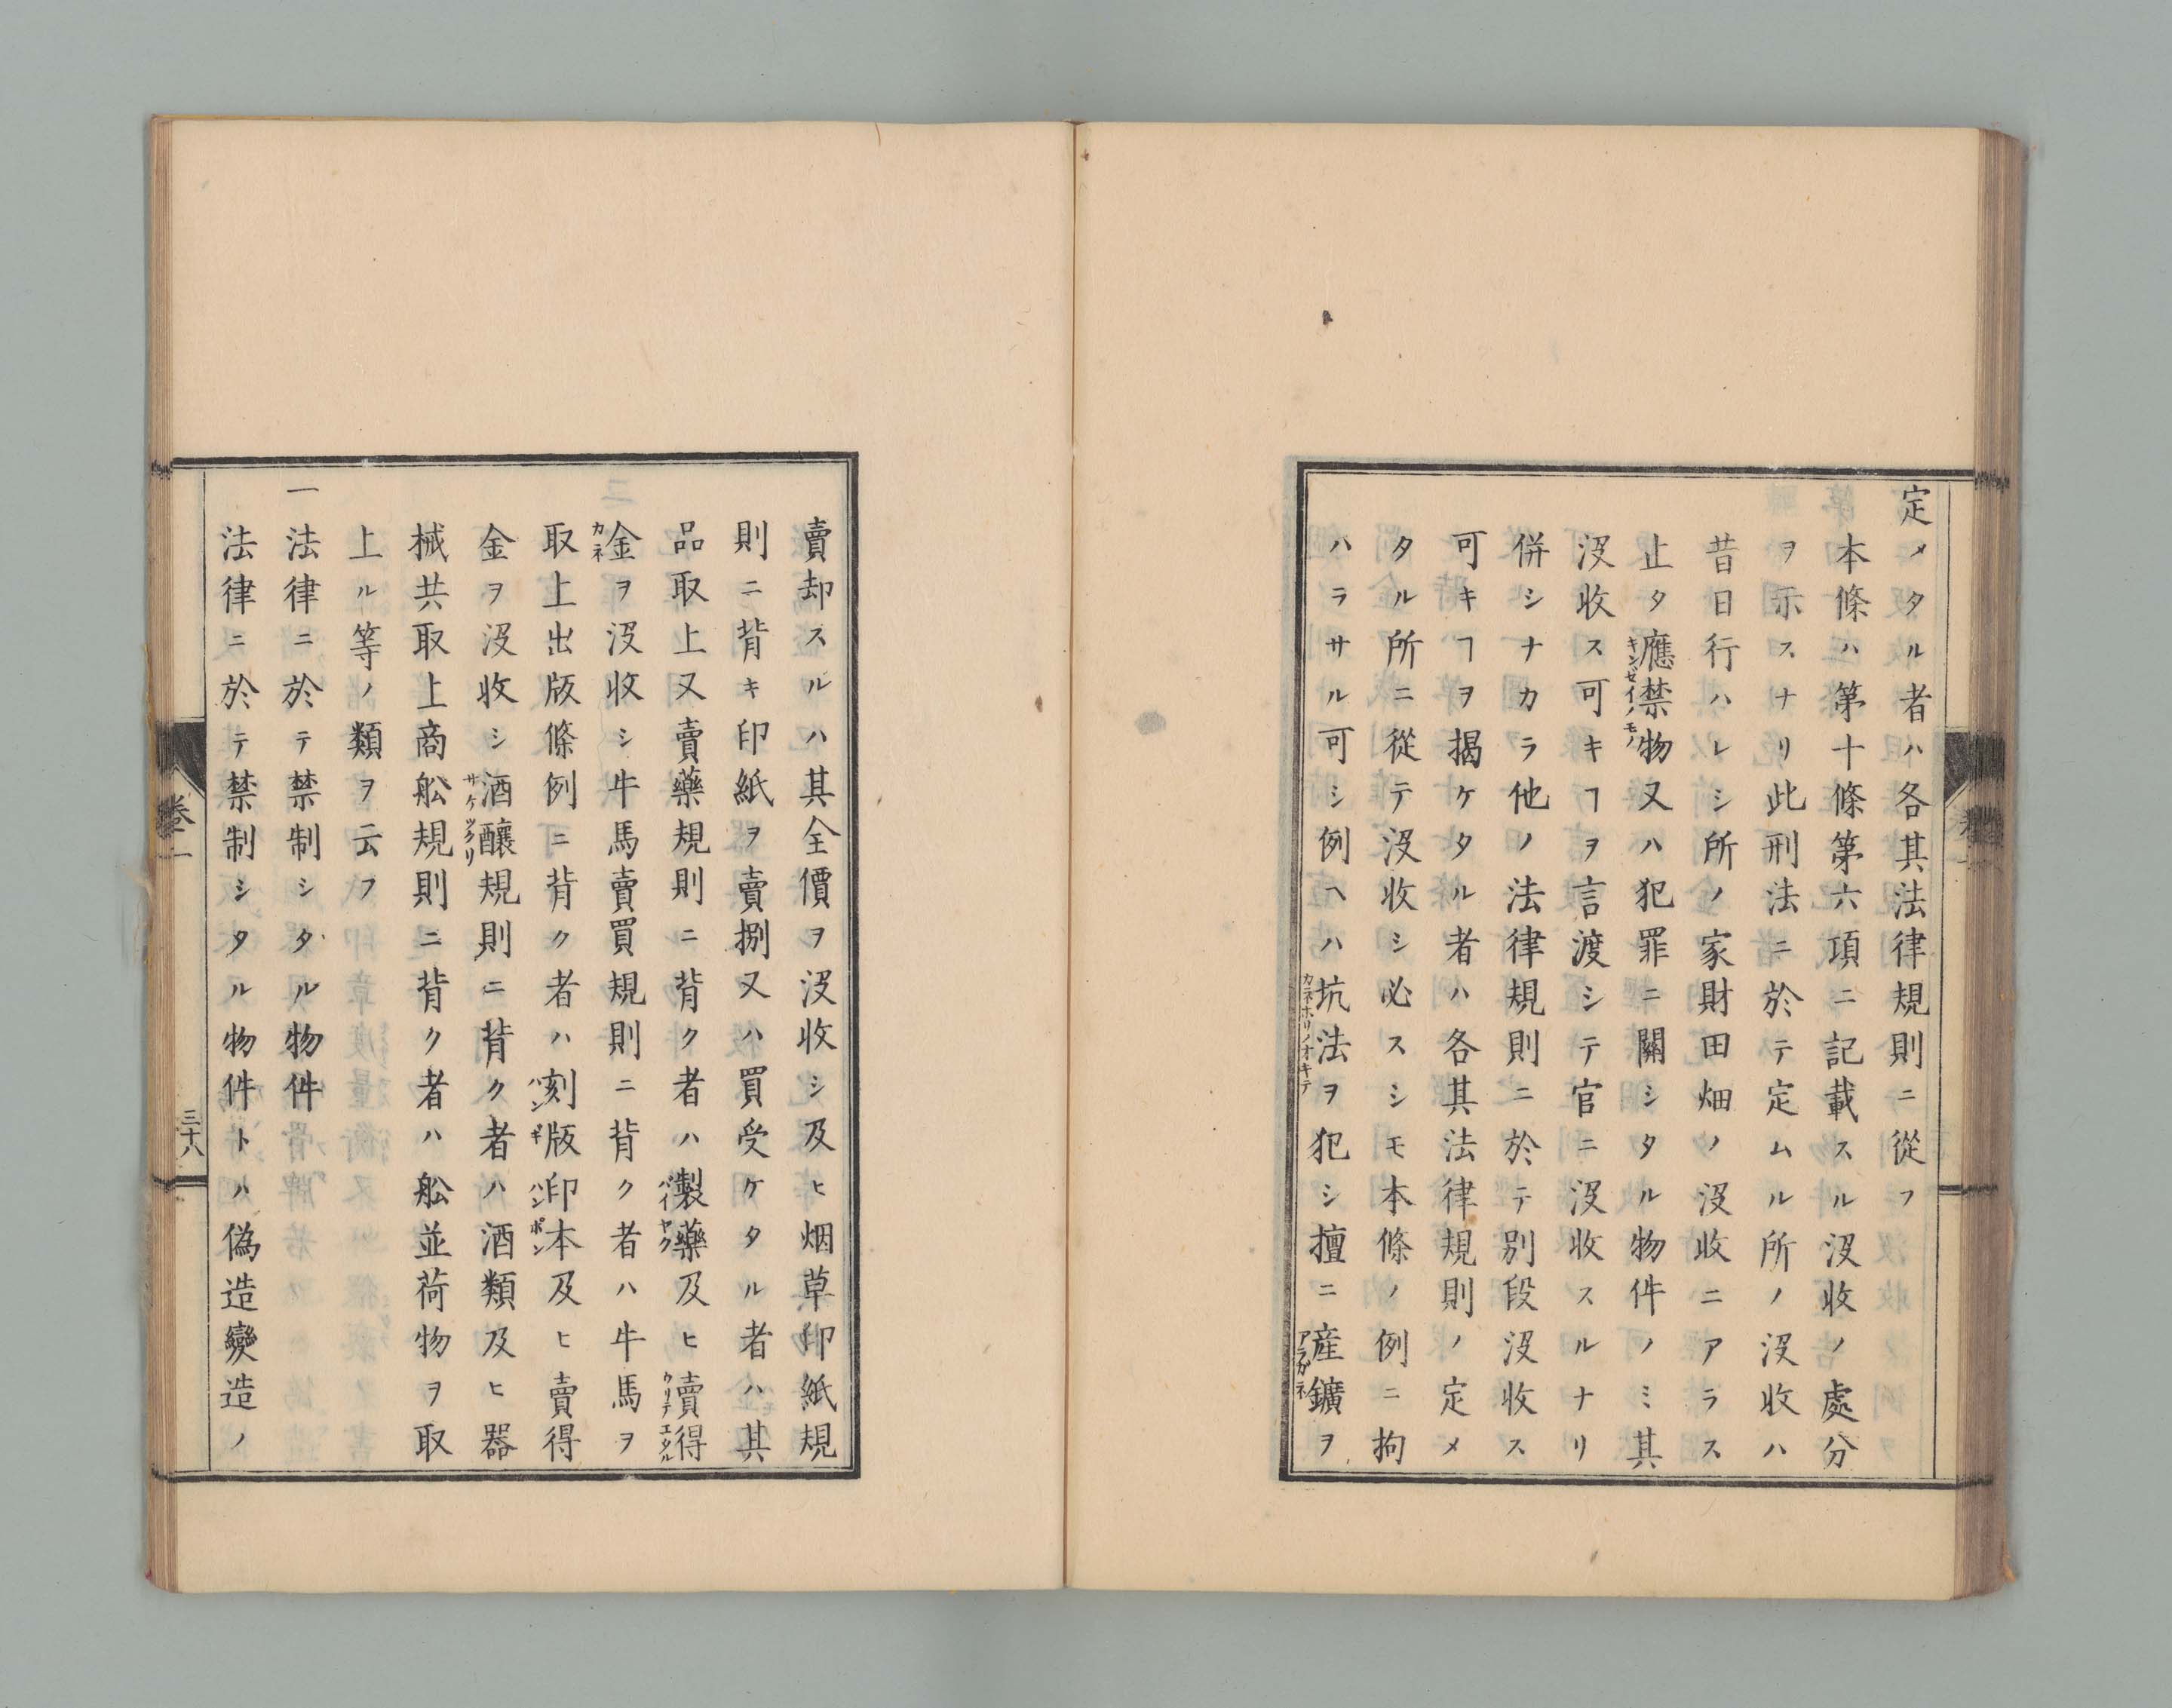 定メタル者ハ各其法律規則ニ從フ
本條ハ第十條第六項ニ記載スル沒收ノ處分
ヲ示スナリ此刑法ニ於テ定ムル所ノ沒收ハ
昔日行ハレシ所ノ家財田畑ノ沒收ニアラス
止タ應禁物又ハ犯罪ニ關シタル物件ノミ其
キンゼイノモノ
沒收ス可キヿヲ言渡シテ官ニ沒收スルナリ
併シナカラ他ノ法律規則ニ於テ別段沒收ス
可キヿヲ揭ケタル者ハ各其法律規則ノ定メ
タル所ニ從テ沒收シ必スシモ本條ノ例ニ拘
ハラサル可シ例ヘハ坑法ヲ犯シ擅ニ産鑛ヲ
カネホリノオキテ
アラガネ
賣却スルハ其全價ヲ沒收シ及ヒ烟草印紙規
則ニ背キ印紙ヲ賣捌又ハ買受ケタル者ハ其
品取上又賣藥規則ニ背ク者ハ製藥及ヒ賣得
バイヤク
ウリテエタル
金ヲ沒收シ牛馬賣買規則ニ背ク者ハ牛馬ヲ
カネ
取上出版條例ニ背ク者ハ刻版印本及ヒ賣得
ハンギ
ハンポン
金ヲ沒收シ酒釀規則ニ背ク者ハ酒類及ヒ器
サケツクリ
械共取上商舩規則ニ背ク者ハ舩並荷物ヲ取
上ル等ノ類ヲ云フ
一法律ニ於テ禁制シタル物件
法律ニ於テ禁制シタル物件トハ偽造變造ノ
卷一
三十八